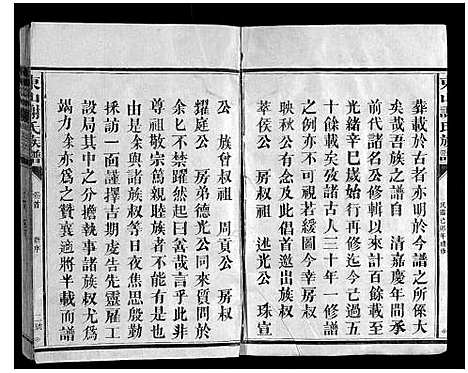 東山謝氏族譜
民國己卯年續修
葬載於古者亦明於今譜之所係大
矣哉吾族之譜自 清嘉慶年間承
前代諸名及修輯以來計百餘載至
光緒辛巳歲始行再修迄今己過五
十餘載矣攷諸古人三十年一修譜
之例亦不可視若緩圖今幸房叔
映秋公有及此倡首邀出族叔
萃侯公 房叔 述光公 珠宣
公 族曾叔祖 周賁公 房叔
耀庭公 房弟德光公同來質問於
余乜不禁躍然曰善哉言乎此非
尊祖敬宗篤親睦族者所為也於是
余與諸族叔等日夜焦思殷勤
採訪一面謹擇吉期虔告先靈雇工
設局其中之分擔執事諸族叔尤為
竭力余亦為之贊襄適將半載而譜
東山謝氏族譜
卷首 新序
二號